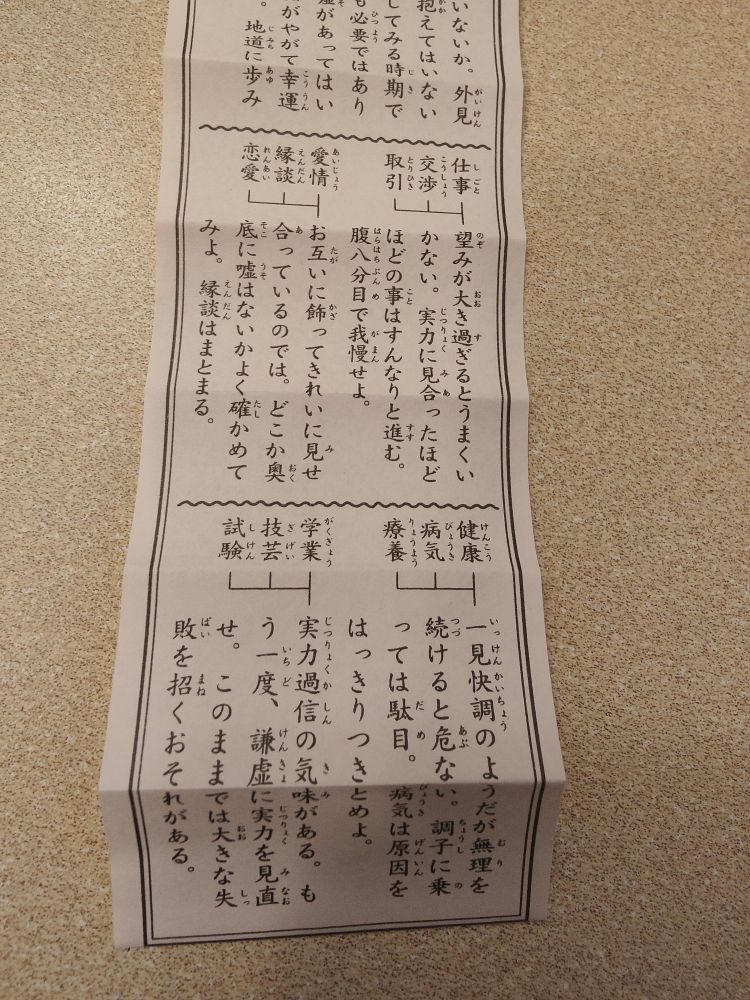 いないか。外見
抱えてはいない
してみる時期で
も必要ではあり
があってはい
がやがて幸運
。地道に歩み
仕事
交渉
取引
望みが大き過ぎるとうまくい
かない。実力に見合ったほど
ほどの事はすんなりと進む。
腹八分目で我慢せよ。
愛情
縁談
恋愛
お互いに飾ってきれいに見せ
合っているのでは。どこか奥
底に嘘はないかよく確かめて
みよ。縁談はまとまる。
健康
病気
療養
一見快調のようだが無理を
続けると危ない。調子に乗
っては駄目。病気は原因を
はっきりつきとめよ。
学業
技芸
試験
実力過信の気味がある。も
う一度、謙虚に実力を見直
せ。このままでは大きな失
敗を招くおそれがある。